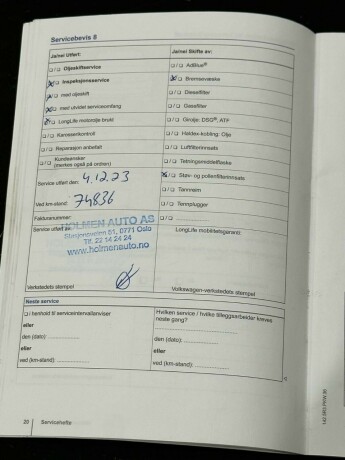 Servicebevis 8
Ja/nei Utført:
Ja/nei Skifte av:
❏/❏ Oljeskiftservice
❏/❏ AdBlue®
❏/❏ Inspeksjonsservice
❏/❏ Bremsevæske
❏/❏ med oljeskift
❏/❏ Dieselfilter
❏/❏ med utvidet serviceomfang
❏/❏ Gassfilter
❏/❏ LongLife motorolje brukt
❏/❏ Girolje: DSG®, ATF
❏/❏ Karosserikontroll
❏/❏ Haldex-kobling: Olje
❏/❏ Reparasjon anbefalt
❏/❏ Luftfilterinnsats
❏/❏ Kundeønsker
(merkes også på ordren)
❏/❏ Tetningsmiddelflaske
Service utført den: 4.12.23
❏/❏ Støv- og pollenfilterinnsats
❏/❏ Tannreim
Ved km-stand: 74836
❏/❏ Tennplugger
Fakturanummer:
❏/❏
Service utført av:
LongLife mobilitetsgaranti:
HOLMEN AUTO AS
51, 0771 Oslo
Tlf. 22 14 24 24
www.holmenauto.no
Verkstedets stempel
Volkswagen-verkstedets stempel
Neste service
❏ i henhold til serviceintervallanviser
eller
den (dato):
eller
ved (km-stand):
Hvilken service / hvilke tilleggsarbeider kreves
neste gang?
den (dato):
eller
ved (km-stand):
20 Servicehefte